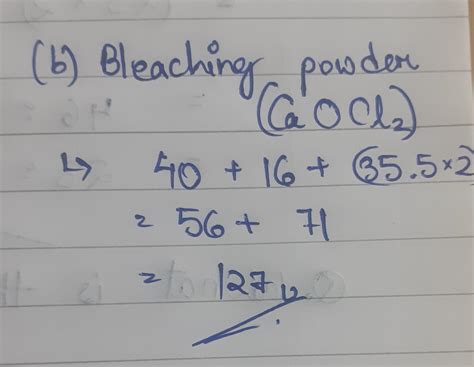 (b) Bleaching powder
(CaOCl2)
↳ 40 + 16 + (35.5×2
= 56 + 71
= 127